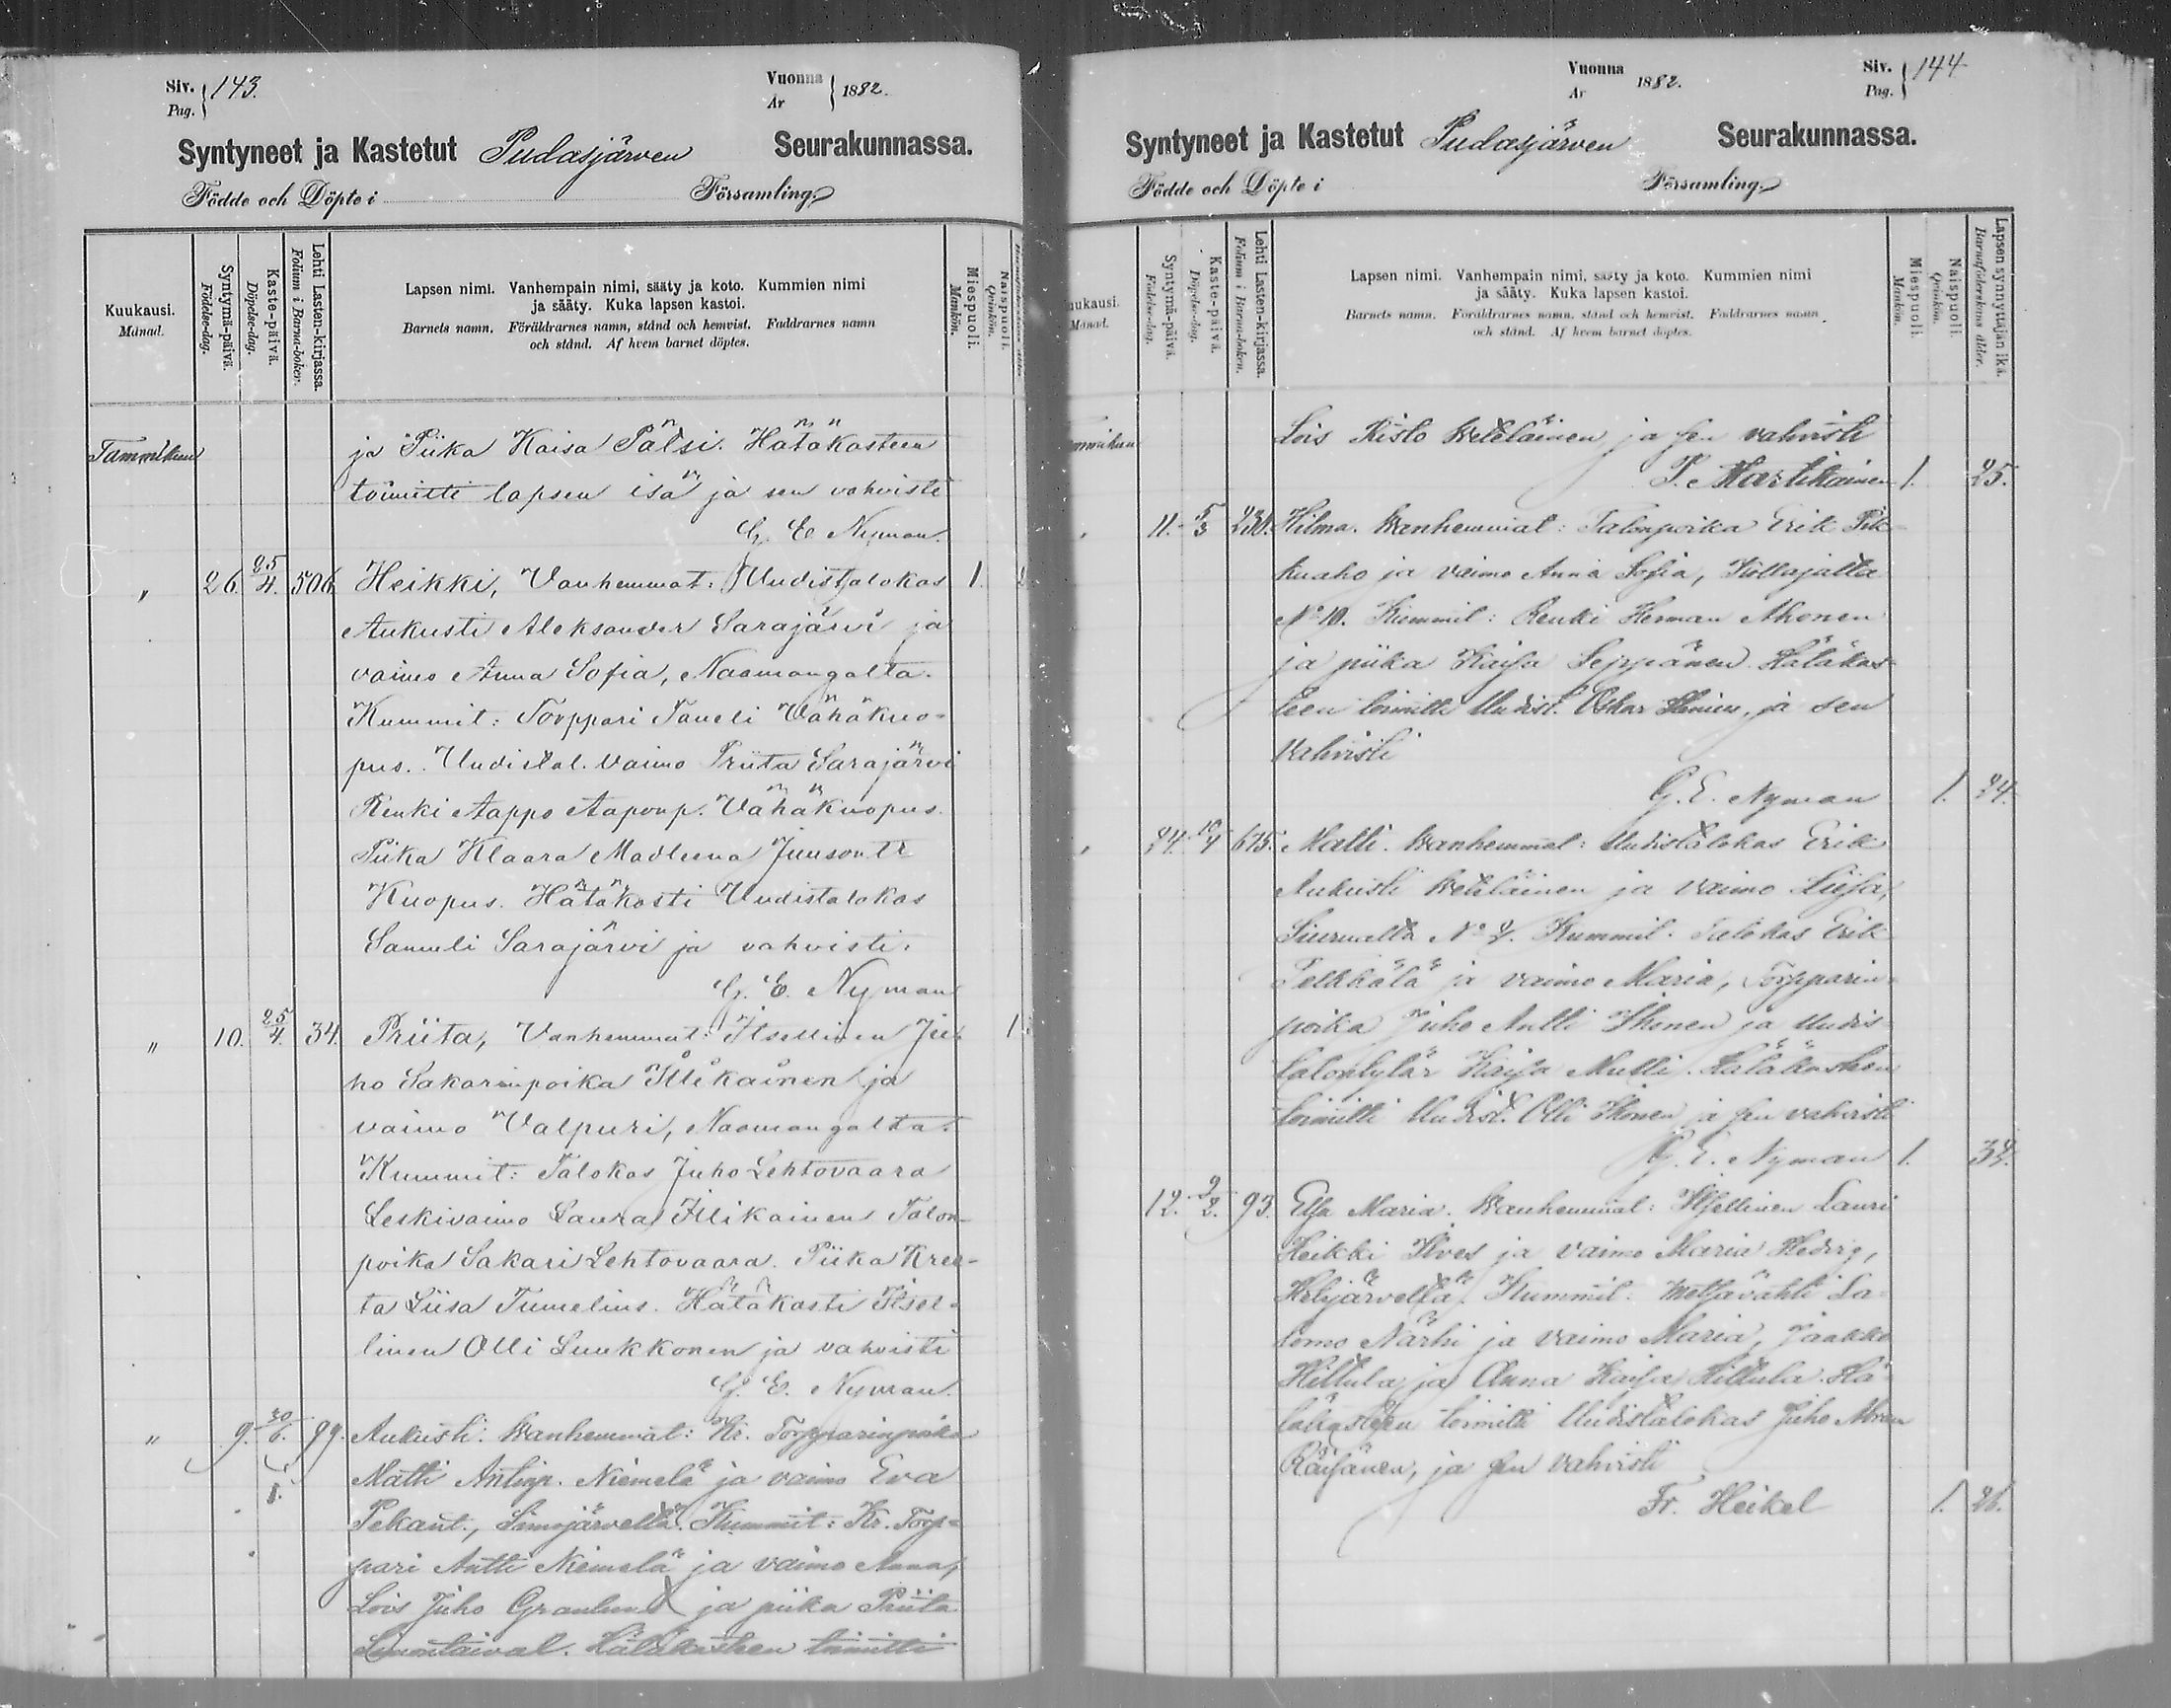 Siv. 143.
Pag.
Vuonna 1882.
År
Syntyneet ja Kastetut Pudasjärven Seurakunnassa.
Födde och Döpte i Församling.
Kuukausi.
Månad.
Syntymä-päivä.
Födelse-dag.
Kaste-päivä.
Döpelse-dag.
Lehti Lasten-kirjassa.
Folium i Barna-boken.
Lapsen nimi. Vanhempain nimi, sääty ja koto. Kummien nimi
ja sääty. Kuka lapsen kastoi.
Barnets namn. Föräldrarnes namn, stånd och hemvist. Faddrarnes namn
och stånd. Af hvem barnet döptes.
Miespuoli.
Mankön.
Naispuoli.
Qvinkön.
Tammikuu ja Piika Kaisa Pätsi. Hätäkasteen
toimitti lapsen isä ja sen vahvisti
G. E. Nyman.
" 26. 25/4. 506 Heikki, Vanhemmat: Uudistalokas 1.
Aukusti Aleksander Sarajärvi ja
vaimo Anna Sofia, Naamangalta.
Kummit: Torppari Taneli Vähäkuo-
pus. Uudistal. vaimo Priita Sarajärvi
Renki Aappo Aaponp. Vähäkuopus.
Piika Klaara Madleena Juusontr
Kuopus. Hätäkasti Uudistalokas
Samuli Sarajärvi ja vahvisti.
G. E. Nyman
" 10. 25/4. 34. Priita, Vanhemmat: Itsellinen Ju- 1.
ho Sakarinpoika Illikainen ja
vaimo Valpuri, Naamangalta.
Kummit: Talokas Juho Lehtovaara
Leskivaimo Laura Illikainen Talon-
poika Sakari Lehtovaara. Piika Kree-
ta Liisa Tumelius. Hätäkasti Itsel-
linen Olli Luukkonen ja vahvisti
G. E. Nyman.
" 9. 99. Aukusti. Wanhemmat: Kr. Torpparinpoika
Matti Antinp. Niemelä ja vaimo Eva
Pekant., Simojärveltä. Kummit: Kr. Torp-
pari Antti Niemelä ja vaimo Anna,
Lois Juho Granlund ja piika Priita
Simontaival. Hätäkasteen toimitti
Vuonna 1882.
Ar
Siv. 144
Pag.
Syntyneet ja Kastetut Pudasjärven Seurakunnassa.
Födde och Döpte i Församling.
Kuukausi.
Månad.
Syntymä-päivä.
Födelse-dag.
Kaste-päivä.
Döpelse-dag.
Lehti Lasten-kirjassa.
Folium i Barna-boken.
Lapsen nimi. Vanhempain nimi, sääty ja koto. Kummien nimi
ja sääty. Kuka lapsen kastoi.
Barnets namn. Föräldrarnes namn, stånd och hemvist. Faddrarnes namn
och stånd. Af hvem barnet döptes.
Miespuoli.
Mankön.
Naispuoli.
Qvinkön.
Lapsen synnyttäjän ikä.
Barnaföderskans ålder.
Lois Risto Weteläinen ja sen vahvisti
P. Martikainen 1. 25.
11. 5/3 230. Hilma. Wanhemmat: Talonpoika Erik Pik-
kuaho ja vaimo Anna Sofia,
No 10. Kummit: Renki Herman Ahonen
ja piika Kaisa Seppänen. Hätäkas-
teen toimitti Uudist. Oskar ja sen
vahvisti
G. E. Nyman 1. 24.
24. 10/4 675. Matti. Wanhemmat: Uudistalokas Erik
Aukusti Weteläinen ja vaimo Liisa,
Siurualta No 4. Kummit. Talokas Erik
Pelkkälä ja vaimo Maria, Torpparin-
poika Juho Antti Ihonen ja Uudis-
talontytär Kaisa Hätäkasteen
toimitti Uudist. Olli Ihonen ja sen vahvisti
G. E. Nyman 1. 34.
12. 2/2. 93. Elsa Maria. Wanhemmat: Itsellinen Lauri
Heikki Ilves ja vaimo Maria Hedvig,
Kummit. Metsävahti Sa-
lomo Närhi ja vaimo Maria, Jaakko
Hiltula ja Anna Kaisa Hiltula. Hä-
täkasteen toimitti Uudistalokas Juho
Räisänen, ja sen vahvisti
Fr. Heikel 1. 26.